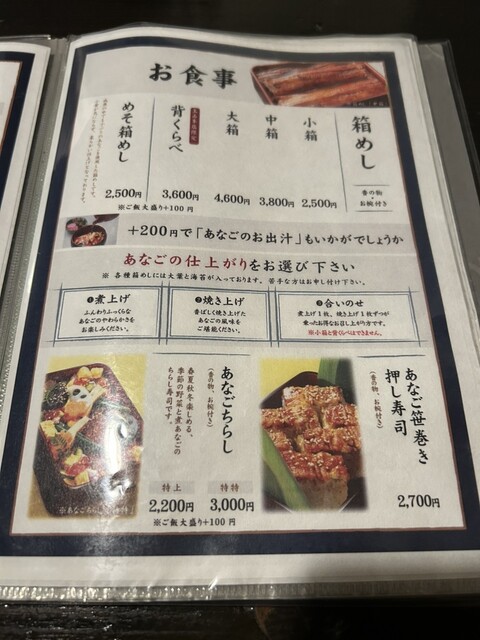 お食事
箱めし
香の物・お椀付き
小箱
2,500円
中箱
3,800円
大箱
4,600円
背くらべ
3,600円
めそ箱めし
2,500円
※ご飯大盛り+100円
+200円で「あなごのお出汁」もいかがでしょうか
あなごの仕上がりをお選び下さい
※ 各種箱めしには大葉と海苔が入っております。苦手な方はお申し付け下さい。
❶煮上げ
ふんわりふっくらな
あなごのやわらかさを
お楽しみください。
❷焼き上げ
香ばしく焼き上げた
あなごの風味を
ご堪能ください。
❸合いのせ
煮上げ1枚、焼き上げ1枚ずつが
乗ったお得なお召し上がり方です。
※小箱と背くらべはできません。
あなご笹巻き
押し寿司
(香の物、お椀付き)
2,700円
あなごちらし
(香の物、お椀付き)
春夏秋冬楽しめる、
季節の野菜と煮あなごの
ちらし寿司です。
特上
2,200円
特特
3,000円
※ご飯大盛り+100円